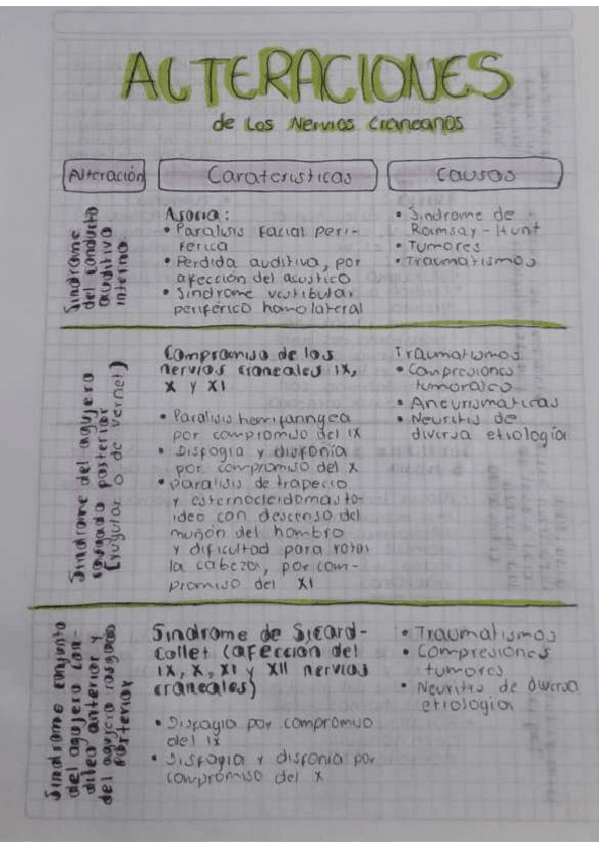 ALTERACIONES
de Los Nervios Craneanos
Alteración
Caraterísticas
Causas
Sindrome
del conducto
auditivo
interno
Asocia:
• Paralisis facial peri-
ferica
• Perdida auditiva, por
afección del acustico
• Sindrome vestibular
periférico homolateral
• Sindrome de
Raimsay-Hunt
• Tumores
• Traumatismos
Sindrome del agujero
rasgado posterior
(yugular o de vernet)
Compromiso de los
nervios craneales IX,
X y XI
• Paralisis hemifaringea
por compromiso del IX
• Disfagia y disfonía
por compromiso del X
• paralisis de trapecio
y esternocleidomasto-
ideo con descenso del
muñón del hombro
y dificultad para rotar
la cabeza, por com-
promiso del XI
Traumatismos
• Compresiones
tumorales
• Aneurismaticas
• Neuritis de
diversa etiología
Sindrome conjunto
del agujero con-
dileo anterior y
del agujero rasgado
posterior
Sindrome de Sicard-
Collet (afección del
IX, X, XI y XII nervios
craneales)
• Disfagia por compromiso
del IX
• Disfagia y disfonia por
compromiso del X
• Traumatismos
• Compresiones
tumores
• Neuritis de diversa
etiología